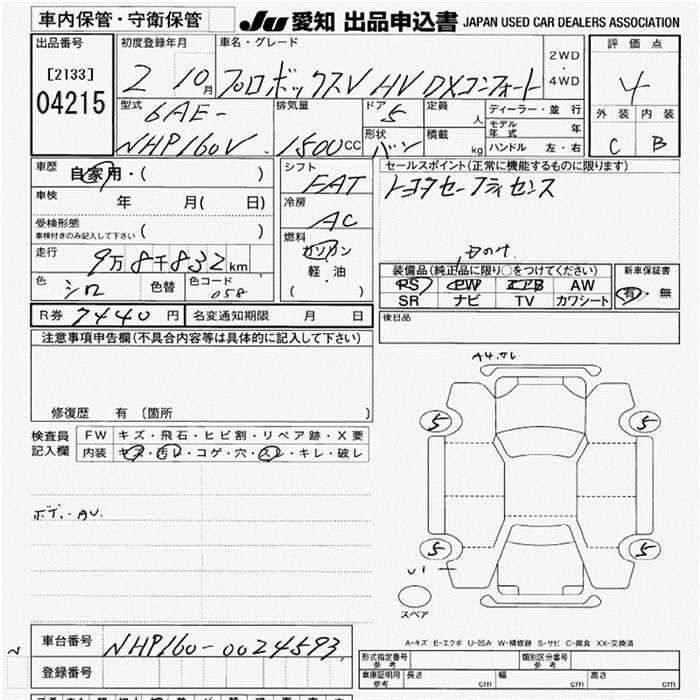 車内保管・守衛保管
JU 愛知 出品申込書 JAPAN USED CAR DEALERS ASSOCIATION
出品番号
[2133]
04215
初度登録年月
2 10月
車名・グレード
プロボックスV HV DXコンフォート
2WD
・
4WD
評価点
4
外装 内装
C B
型式
6AE-
NHP160V
排気量
1500CC
ドア 5
形状 バン
定員 人
積載 kg
ディーラー・並行
モデル年式 年
ハンドル 左・右
車歴 自家用・( )
車検 年 月( 日)
受検形態
車検付きのみ記入して下さい ( )
走行 9万8千832km
色 シロ 色替 色コード 058
シフト
FAT
冷房
AC
燃料
ガソリン
軽・油
( )
セールスポイント(正常に機能するものに限ります)
トヨタセーフティセンス
装備品(純正品に限り○をつけてください)
PS PW エアB AW
SR ナビ TV カワシート
新車保証書
有・無
R券 7440円 名変通知期限 月 日
後日品
注意事項申告欄(不具合内容等は具体的に記入して下さい)
修復歴 有 〔箇所 〕
検査員
記入欄
FW キズ・飛石・ヒビ割・リペア跡・X要
内装 キズ・汚レ・コゲ・穴・スレ・キレ・破レ
ボデ.-AU.
A4.サレ
5 5
5 5
U1
スペア
A-キズ E-エクボ U-凹み W-補修跡 S-サビ C-腐食 XX-交換済
車台番号 NHP160-0024593
登録番号
形式指定番号
参考
類別区分番号
参考
車庫証明用
参考
長さ cm 幅 cm 高さ cm